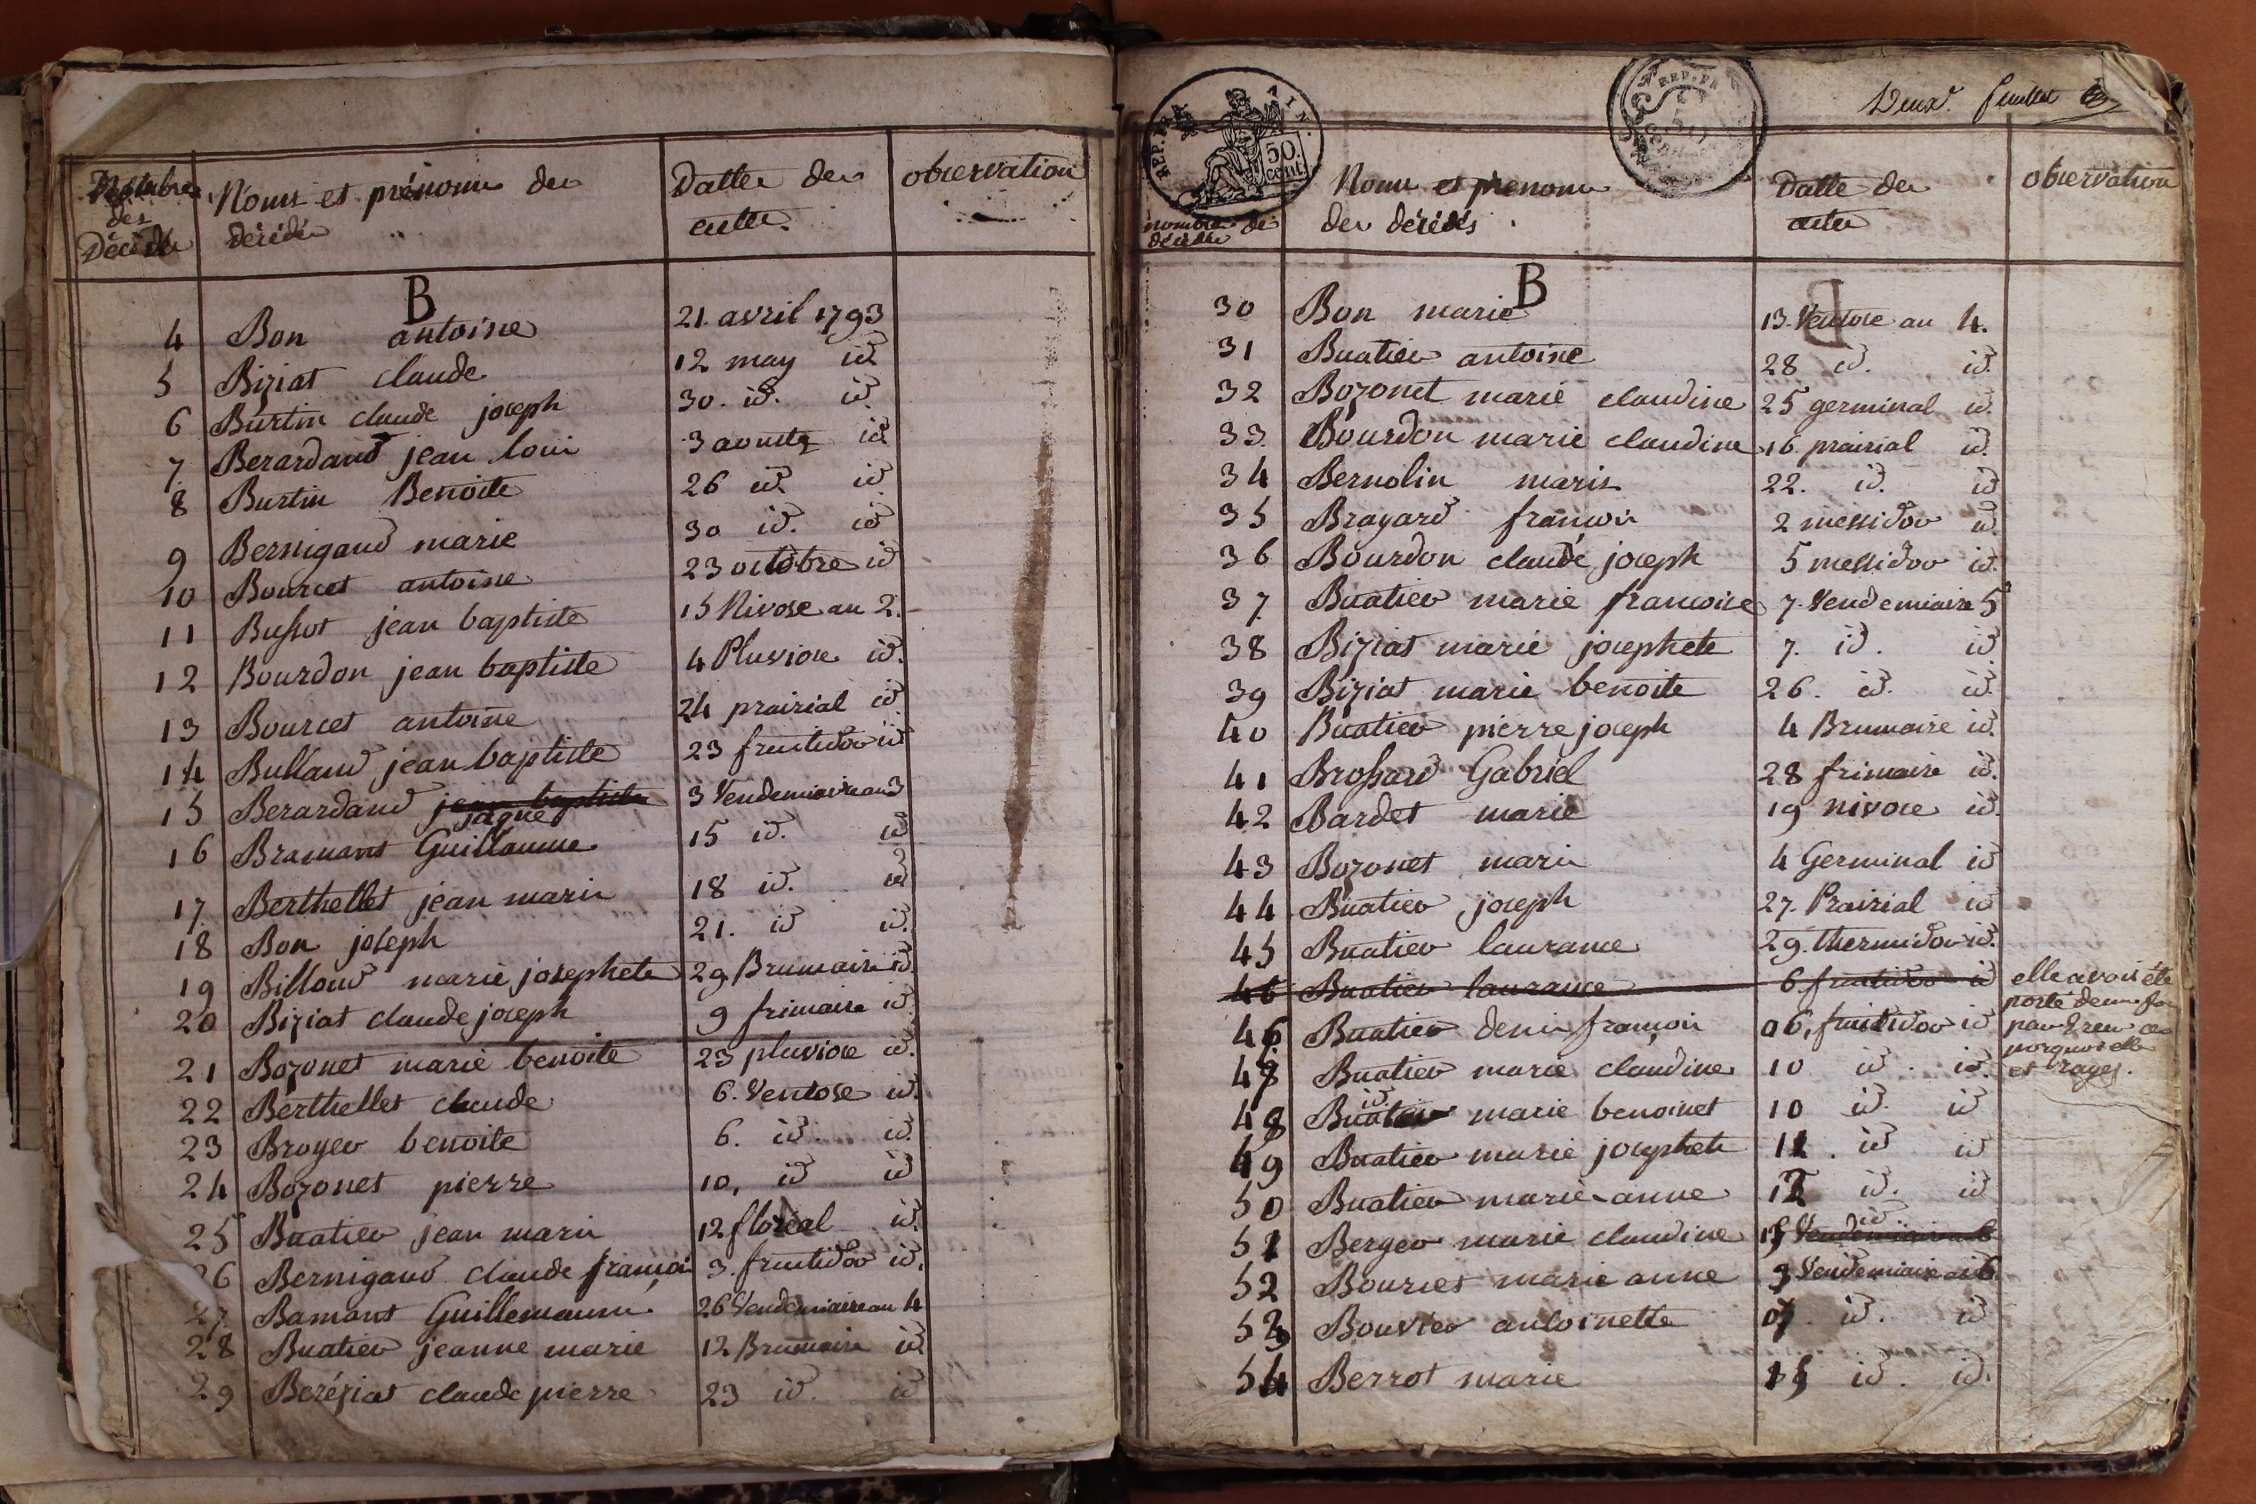 Nombre Noms et prénoms des Dattes des observation
des décédés actes.
Décédés
B
4 Bon antoine 21 avril 1793
5 Biziat claude 12 may id
6 Burtin claude joseph 30. id. id
7 Berardand jean loui 3 aoust id
8 Burtin Benoite 26 id id
9 Bernigaud marie 30 id. id
10 Bourcet antoine 23 octobre id
11 Bussot jean baptiste 15 Nivose an 2.
12 Bourdon jean baptiste 4 Pluviose id.
13 Bourcet antoine 24 prairial id
14 Bulland jean baptiste 23 fructidor id
15 Berardand jean baptiste 3 Vendemiaire an 3
jaque
16 Bramant Guillaume 15 id. id
17. Berthellet jean marie 18 id. id
18 Bon joseph 21. id id.
19 Billoud marie josephete 29 Brumaire id.
20 Biziat claude joseph 9 frimaire id
21 Bozonet marie benoite 23 pluviose id.
22 Berthellet claude 6. Ventose id.
23 Broyer benoite 6. id. id.
24 Bozonet pierre 10, id id
25 Buatier jean marie 12 floréal id.
26 Bernigaud claude françoi 3. fructidor id.
27. Bamant Guillemaume 26 Vendemiaire an 4
28 Buatier jeanne marie 12 Brumaire id
29 Beréziat claude pierre 23 id. id
REP. FRA. AIN.
50. cent.
REP. FRA
Deux.e feuillet
nombre des Noms et prenoms Datte des observation
décédés des décédés actes
B
30 Bon marie 13. Ventose an 4.
31 Buatier antoine 28 id. id.
32 Bozonet marie claudine 25 germinal id.
33. Bourdon marie claudine 16 prairial id.
34 Bernolin marie 22. id. id
35 Brayard francois 2 messidor id.
36 Bourdon claude joseph 5 messidor id.
37. Buatier marie francoise 7. Vendemiaire 5
38 Biziat marie josephete 7. id. id
39 Biziat marie benoite 26. id. id.
40 Buatier pierre joseph 4 Brumaire id.
41 Brossard Gabriel 28 frimaire id.
42 Bardet marie 19 nivose id.
43 Bozonet marie 4 Germinal id
44 Buatier joseph 27. Prairial id
45 Buatier laurance 29. thermidor id.
46 Buatier laurance 6 fructidor id elle avoit été
porté deux foi
46 Buatier denis françoi 06, fructidor id par
porquoi elle
47 Buatier marie claudine 10 id. id. et rayez.
id
48 Buatier marie benoinet 10 id. id
49 Buatier marie josephete 11. id id
50 Buatier marie anne 12 id. id
id
51 Berger marie claudine 15 Vendemiaire an 6
52 Bourcet marie anne 3 Vendemiaire an 6
53 Bouvier antoinette 07. id. id
54 Berrot marie 15 id. id.